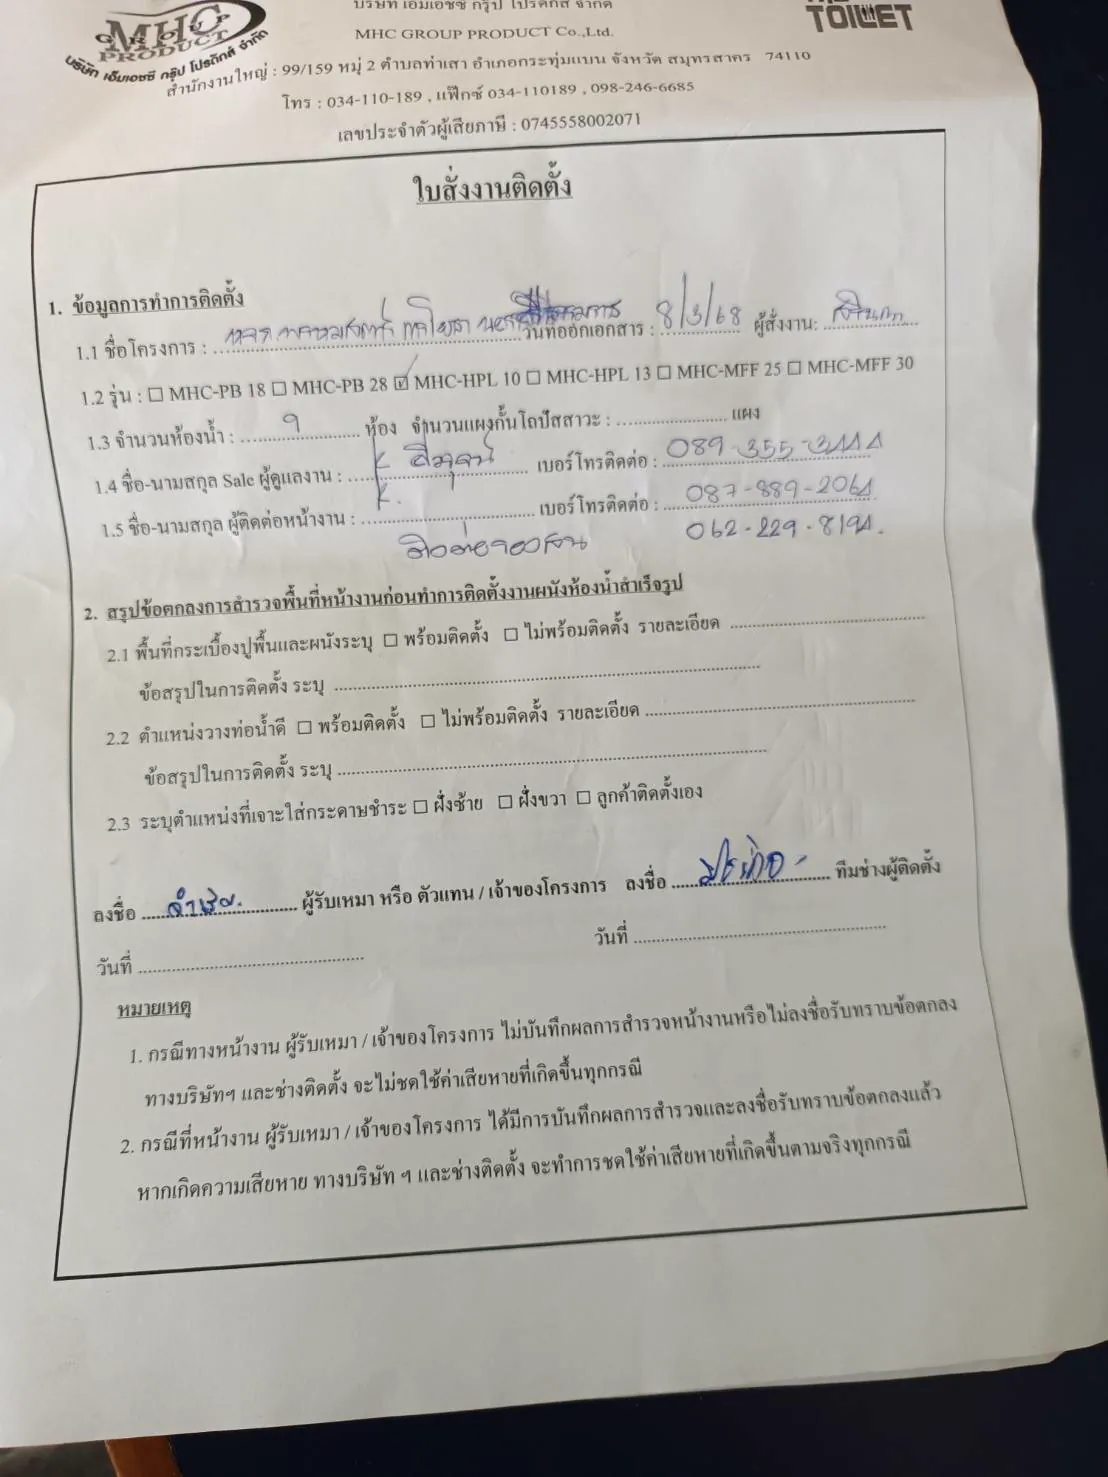 MHC
GROUP
PRODUCT
บริษัท เอ็มเอชซี กรุ๊ป โปรดักส์ จำกัด
บริษัท เอ็มเอชซี กรุ๊ป โปรดักส์ จำกัด
TOILET
MHC GROUP PRODUCT Co.,Ltd.
สำนักงานใหญ่ : 99/159 หมู่ 2 ตำบลท่าเสา อำเภอกระทุ่มแบน จังหวัด สมุทรสาคร 74110
โทร : 034-110-189 , แฟ๊กซ์ 034-110189 , 098-246-6685
เลขประจำตัวผู้เสียภาษี : 0745558002071
ใบสั่งงานติดตั้ง
1. ข้อมูลการทำการติดตั้ง
1.1 ชื่อโครงการ : วันที่ออกเอกสาร : 8/3/68 ผู้สั่งงาน:
1.2 รุ่น : ☐ MHC-PB 18 ☐ MHC-PB 28 ☑ MHC-HPL 10 ☐ MHC-HPL 13 ☐ MHC-MFF 25 ☐ MHC-MFF 30
1.3 จำนวนห้องน้ำ : ห้อง จำนวนแผงกั้นโถปัสสาวะ : แผง
1.4 ชื่อ-นามสกุล Sale ผู้ดูแลงาน : เบอร์โทรติดต่อ : 089-355-3444
1.5 ชื่อ-นามสกุล ผู้ติดต่อหน้างาน : K. เบอร์โทรติดต่อ : 087-889-2064
062-229-8194
2. สรุปข้อตกลงการสำรวจพื้นที่หน้างานก่อนทำการติดตั้งงานผนังห้องน้ำสำเร็จรูป
2.1 พื้นที่กระเบื้องปูพื้นและผนังระบุ ☐ พร้อมติดตั้ง ☐ ไม่พร้อมติดตั้ง รายละเอียด
ข้อสรุปในการติดตั้ง ระบุ
2.2 ตำแหน่งวางท่อน้ำดี ☐ พร้อมติดตั้ง ☐ ไม่พร้อมติดตั้ง รายละเอียด
ข้อสรุปในการติดตั้ง ระบุ
2.3 ระบุตำแหน่งที่เจาะใส่กระดาษชำระ ☐ ฝั่งซ้าย ☐ ฝั่งขวา ☐ ลูกค้าติดตั้งเอง
ลงชื่อ ผู้รับเหมา หรือ ตัวแทน / เจ้าของโครงการ ลงชื่อ ทีมช่างผู้ติดตั้ง
วันที่ วันที่
หมายเหตุ
1. กรณีทางหน้างาน ผู้รับเหมา / เจ้าของโครงการ ไม่บันทึกผลการสำรวจหน้างานหรือไม่ลงชื่อรับทราบข้อตกลง
ทางบริษัทฯ และช่างติดตั้ง จะไม่ชดใช้ค่าเสียหายที่เกิดขึ้นทุกกรณี
2. กรณีที่หน้างาน ผู้รับเหมา / เจ้าของโครงการ ได้มีการบันทึกผลการสำรวจและลงชื่อรับทราบข้อตกลงแล้ว
หากเกิดความเสียหาย ทางบริษัท ฯ และช่างติดตั้ง จะทำการชดใช้ค่าเสียหายที่เกิดขึ้นตามจริงทุกกรณี